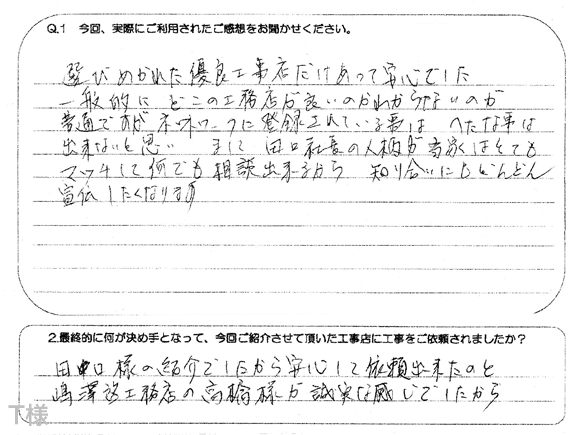 Q.1 今回、実際にご利用されたご感想をお聞かせください。
選びぬかれた優良工事店だけあって安心でした
一般的に どこの工務店が良いのかわからないのが
普通ですが ネットワークに登録されている事は へたな事は
出来ないと思い まして 田口社長の人柄が当家はとても
マッチして何でも相談出来るから 知り合いにもどんどん
宣伝したくなります
2.最終的に何が決め手となって、今回ご紹介させて頂いた工事店に工事をご依頼されましたか?
様の紹介でしたから安心して依頼出来たのと
工務店の高橋様が誠実な感じでしたから
下様